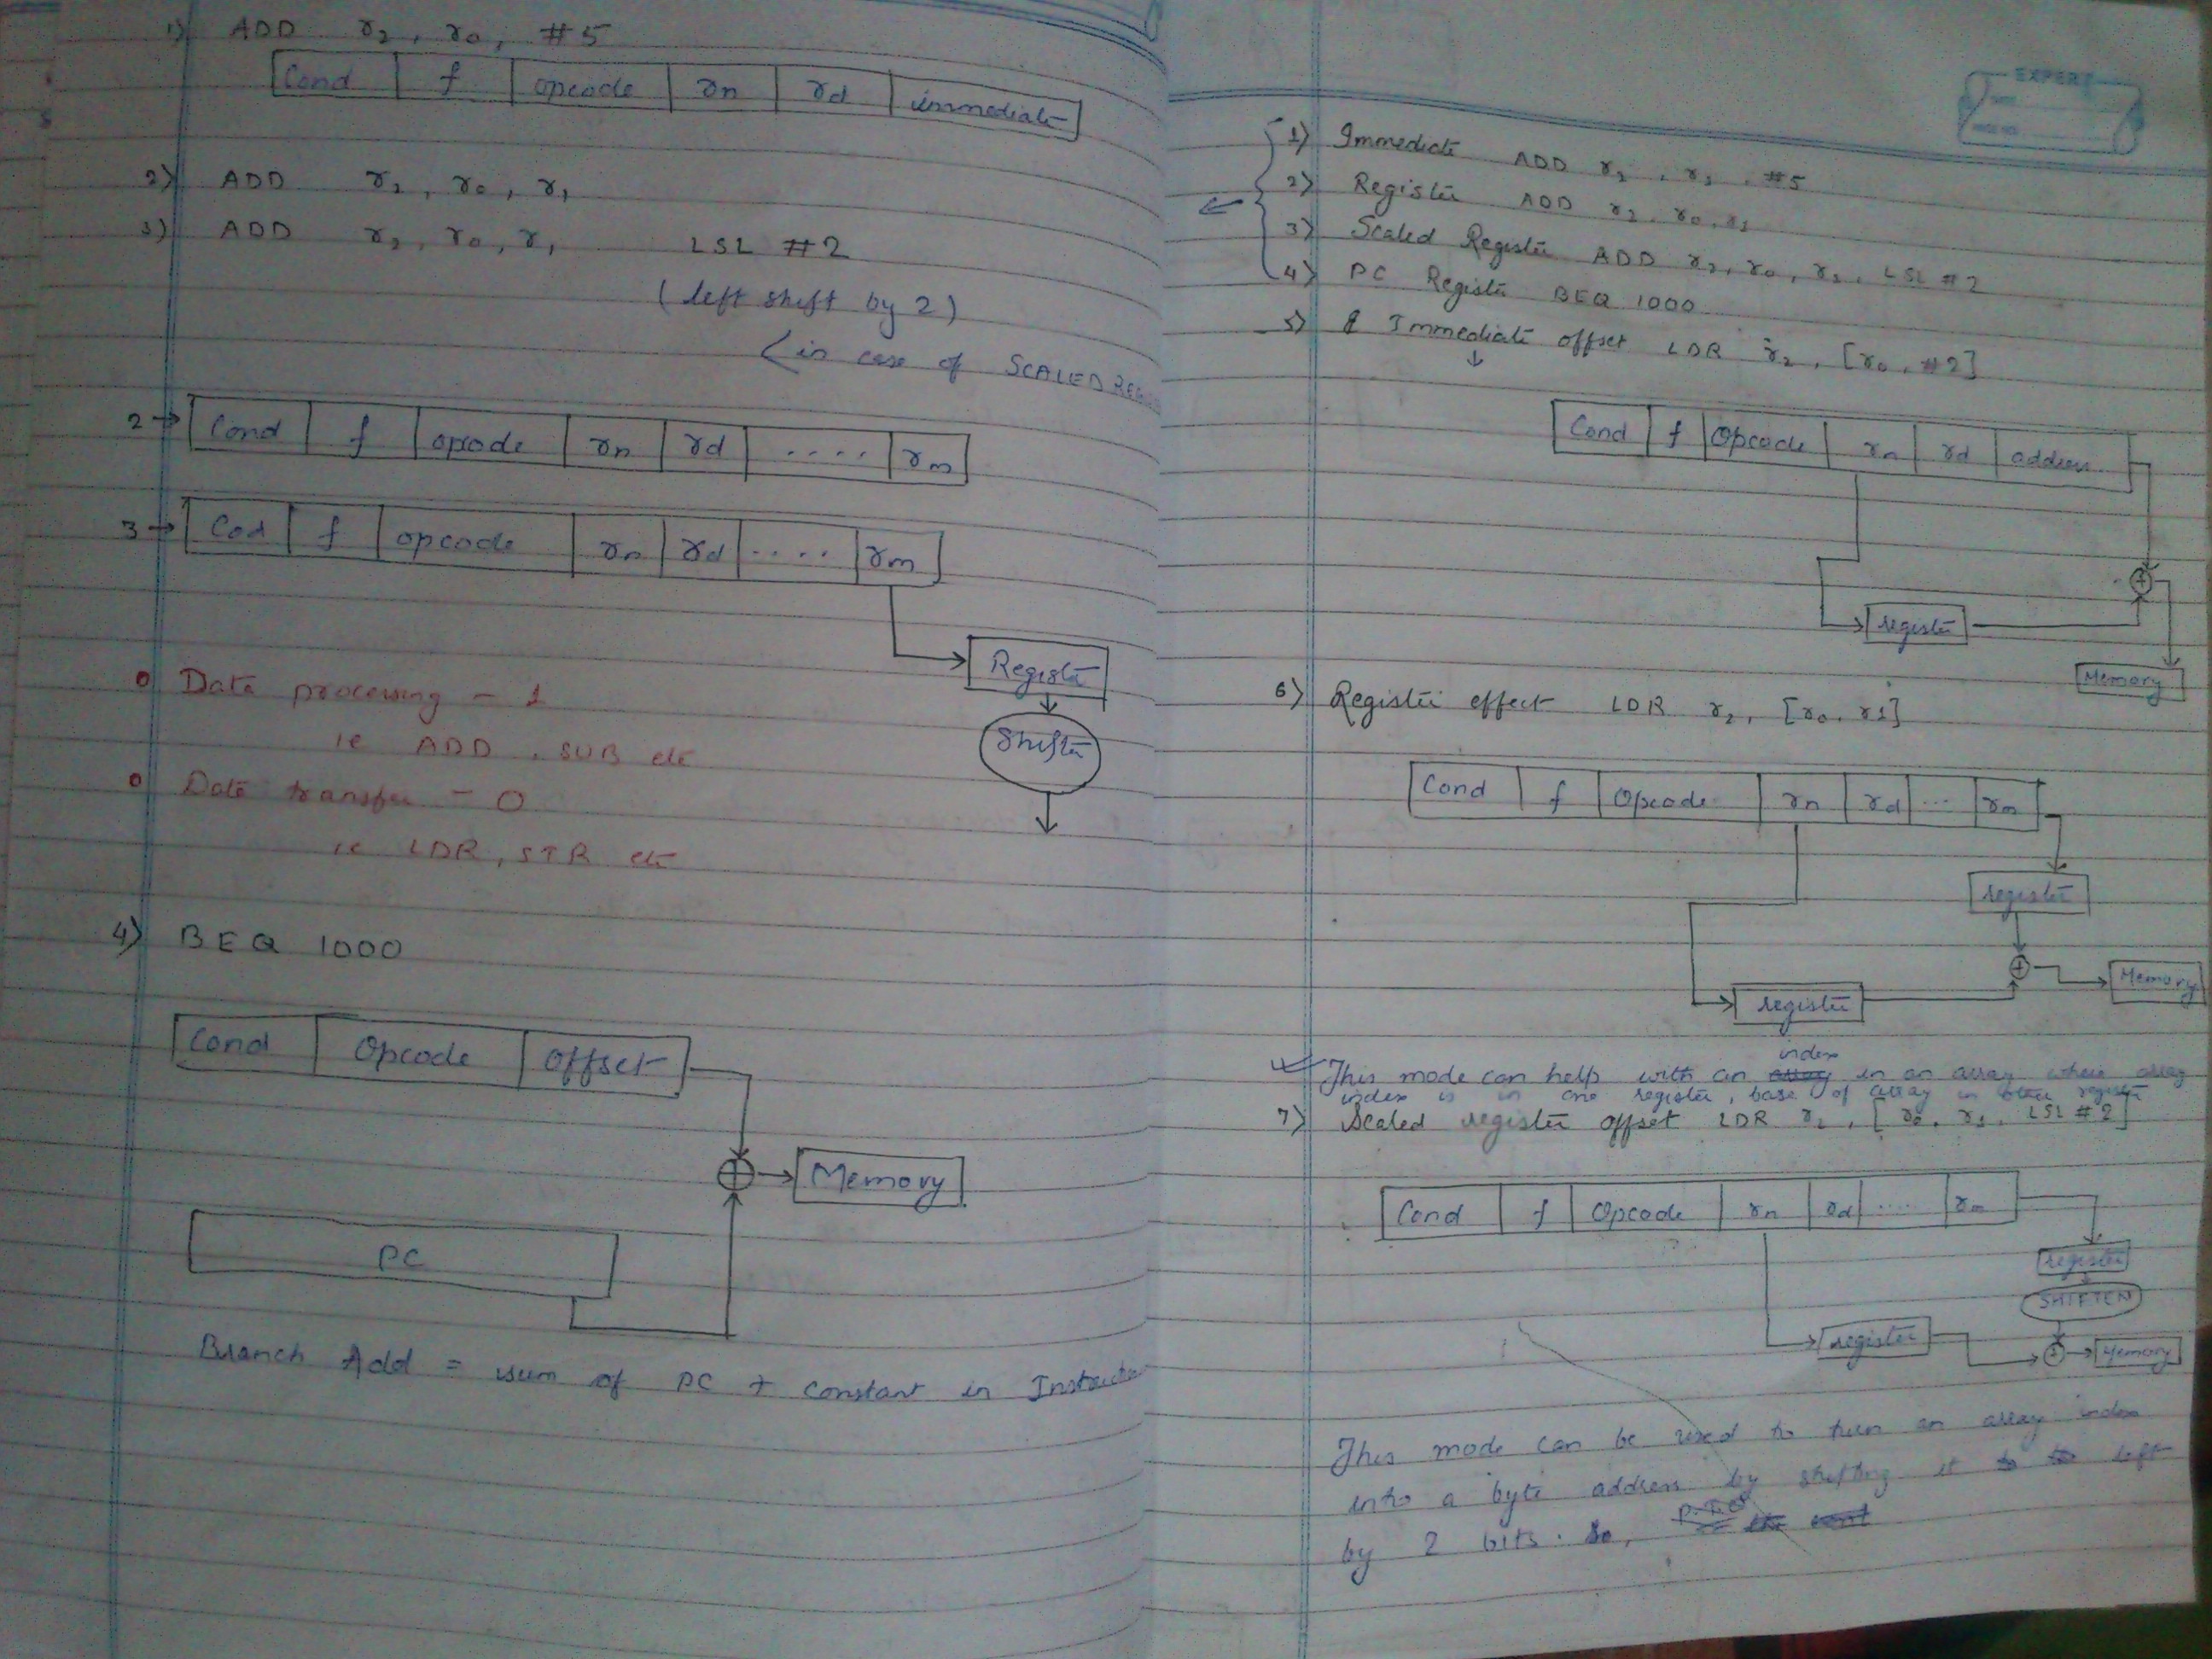 1) ADD r2, r0, #5
Cond f opcode rn rd immediate
2) ADD r2, r0, r1
3) ADD r2, r0, r1 LSL #2
(left shift by 2)
(in case of SCALED REG
2 → Cond f opcode rn rd .... rm
3 → Cod f opcode rn rd .... rm
Register
Shifter
Data processing - 1
ie ADD, SUB etc
Data transfer - 0
ie LDR, STR etc
4) BEQ 1000
Cond Opcode Offset
+ Memory
PC
Branch Add = sum of PC + constant in
EXPERT
1) Immediate ADD r2, r1, #5
2) Register ADD r2, r0, r1
3) Scaled Register ADD r2, r0, r1, LSL #2
4) PC Register BEQ 1000
5) Immediate offset LDR r2, [r0, #2]
Cond f Opcode rn rd address
+
register
Memory
6) Register effect LDR r2, [r0, r1]
Cond f Opcode rn rd ... rm
register
+ Memory
register
index
This mode can help with an array in an array where array
index is in one register, base of array in other register
7) Scaled register offset LDR r2, [r0, r1, LSL #2]
Cond f Opcode rn rd .... rm
register
register + Memory
This mode can be used to turn an array index
into a byte address by shifting it to left
by 2 bits. So,